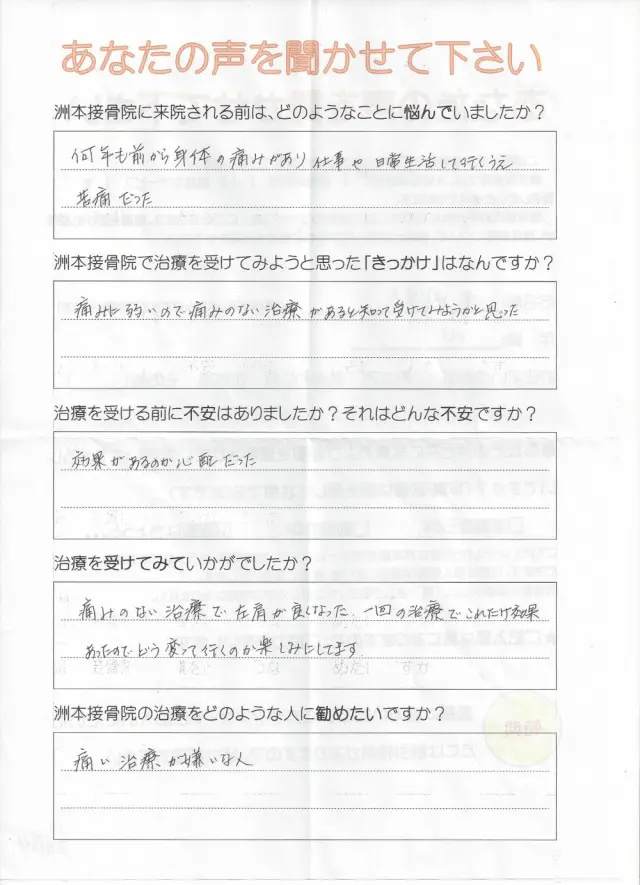 あなたの声を聞かせて下さい
洲本接骨院に来院される前は、どのようなことに悩んでいましたか？
何年も前から身体の痛みがあり仕事や日常生活して行くうえ
苦痛だった
洲本接骨院で治療を受けてみようと思った「きっかけ」はなんですか？
痛みに弱いので痛みのない治療があると知って受けてみようかと思った
治療を受ける前に不安はありましたか？それはどんな不安ですか？
効果があるのか心配だった
治療を受けてみていかがでしたか？
痛みのない治療で左肩が良くなった、一回の治療でこれだけ効果
あったのでどう変って行くのか楽しみにしてます
洲本接骨院の治療をどのような人に勧めたいですか？
痛い治療が嫌いな人